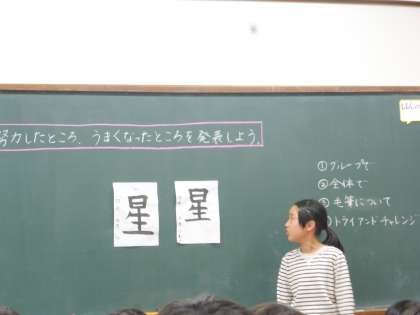 努力したところ、うまくなったところを発表しよう。
①グループで
②全体で
③毛筆について
④トライアンドチャレンジ
星
星